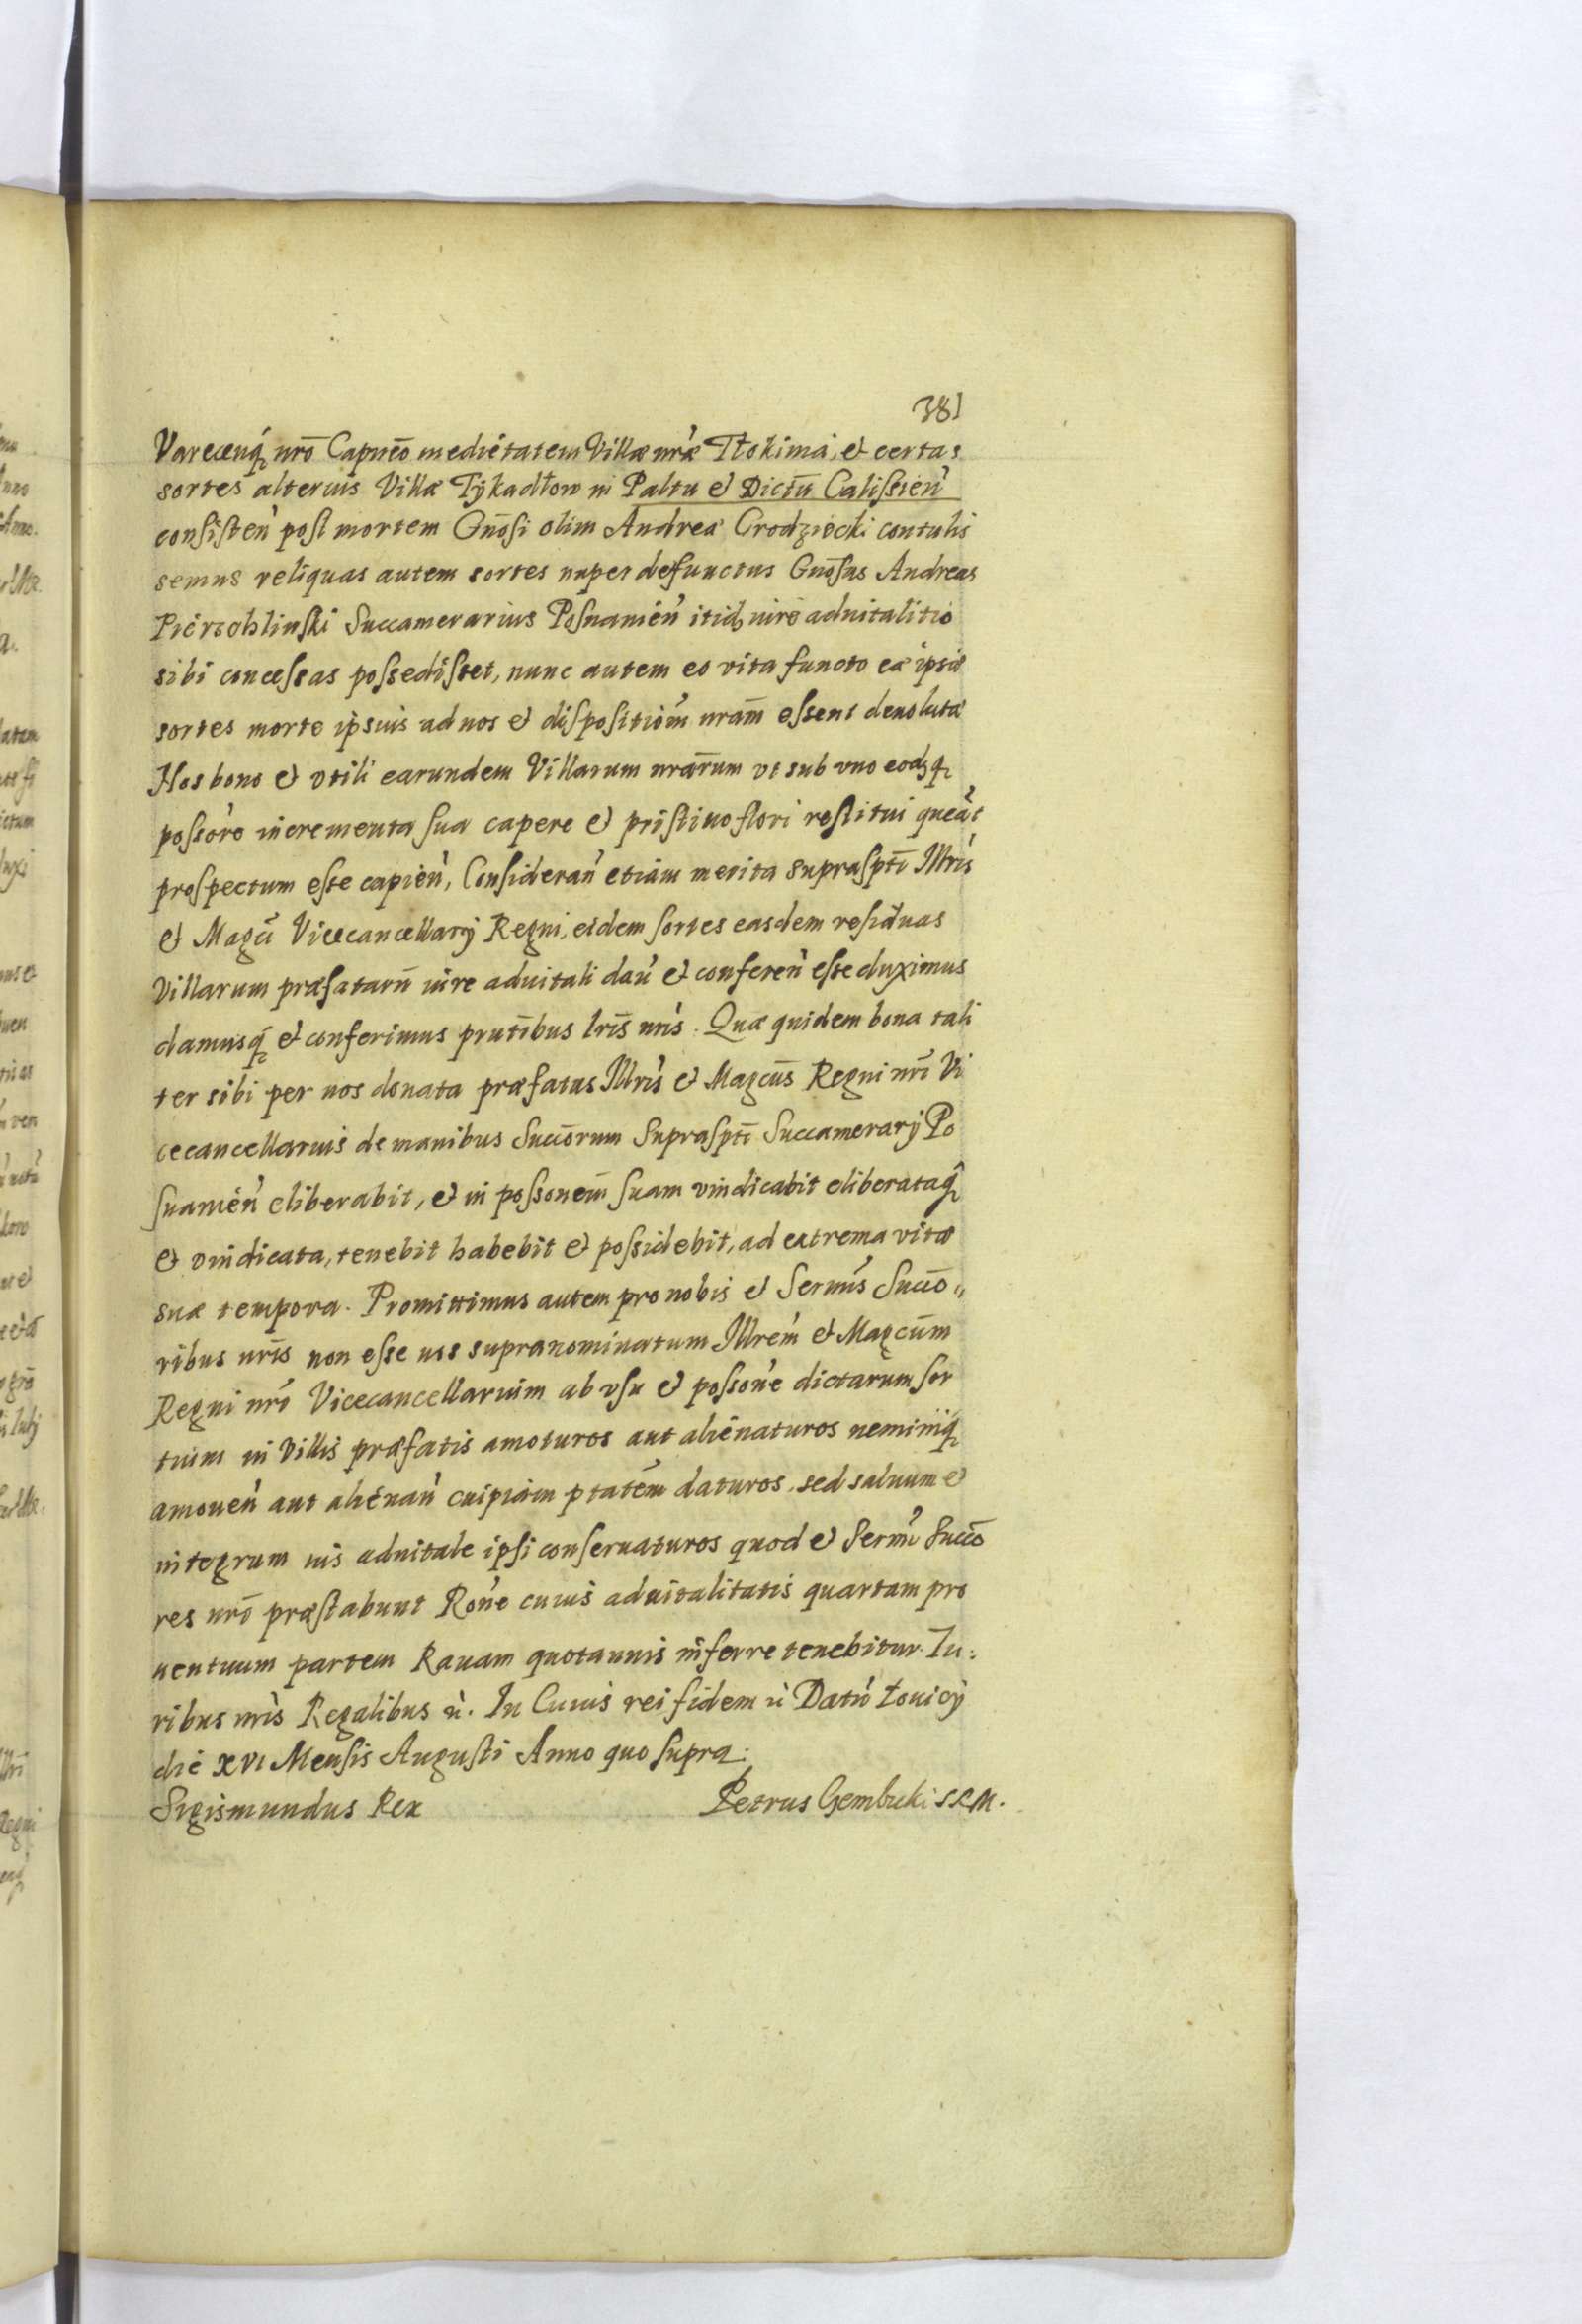 381
Varecenq́ nrō Capneō medietatem Villæ nræ Tłokimia, et certas
sortes alterius Villæ Tÿkadłow in Paltu et Dictū Calissień
consisteń post mortem Gnōsi olim Andreæ Grodziecki contulis
semus reliquas autem sortes nuper defunctus Gnōsus Andreas
Succamerarius Posnanień itidꝫ iure aduitalitio
sibi concessas possedisset, nunc autem eo vita functo eæ ipsæ
sortes morte ipsius ad nos et dispositiōm nram̄ essent deuolutæ
Nos bono et vtili earundem Villarum nrārum vt sub vno eodꝫq́
possore incrementa sua capere et pristino flori restitui queāt
prospectum esse cupień, Consideranń etiam merita suprasptī Illris
et Magcī Vicecancellarÿ Regni, eidem sortes easdem residuas
Villarum præfatarū iure aduitali dań et confereń esse duximus
damusq́ et conferimus prntībus lrīs nris. Quæ quidem bona tali
ter sibi per nos donata præfatus Illris et Magcūs Regni nrī Vi
cecancellarius de manibus Succōrum Suprasptī Succamerarÿ Po
snanień eliberabit, et in possonem̄ suam vindicabit eliberataq́
et vindicata, tenebit habebit et possidebit, ad extrema vitæ
suæ tempora. Promittimus autem pro nobis et Sermīs Succō„
ribus nrīs non esse nos supranominatum Illrem et Magcūm
Regni nrī Vicecancellarium ab vsu et possone dictarum sor
tium in Villis præfatis amoturos aut alienaturos neminiq́
amoueń aut alienań cuipiam ptatem̄ daturos, sed saluum et
integrum ius aduitale ipsi conseruaturos quod et Sermī Succō
res nrī præstabunt Rone cuius aduitalitatis quartam pro
uentuum partem Rauam quotannis inferre tenebitur. Iu:
ribus nris Regalibus ꝛ̀. In Cuius rei fidem ꝛ̀ Datū Łouicÿ
die xvi Mensis Augusti Anno quo supra.
Sigismundus Rex Petrus Gembicki S.R.M.